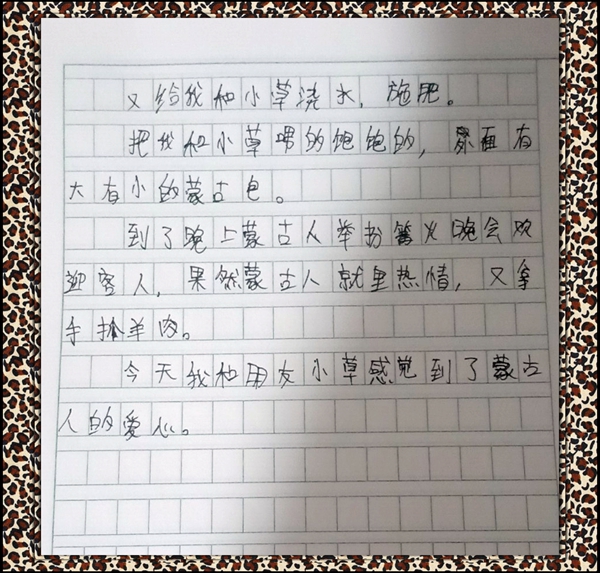 又给我和小草浇水，施肥。
把我和小草喂的饱饱的，景面有
大有小的蒙古包。
到了晚上蒙古人举扮篝火晚会欢
迎客人，果然蒙古人就是热情，又拿
手抓羊肉。
今天我和朋友小草感觉到了蒙古
人的爱心。